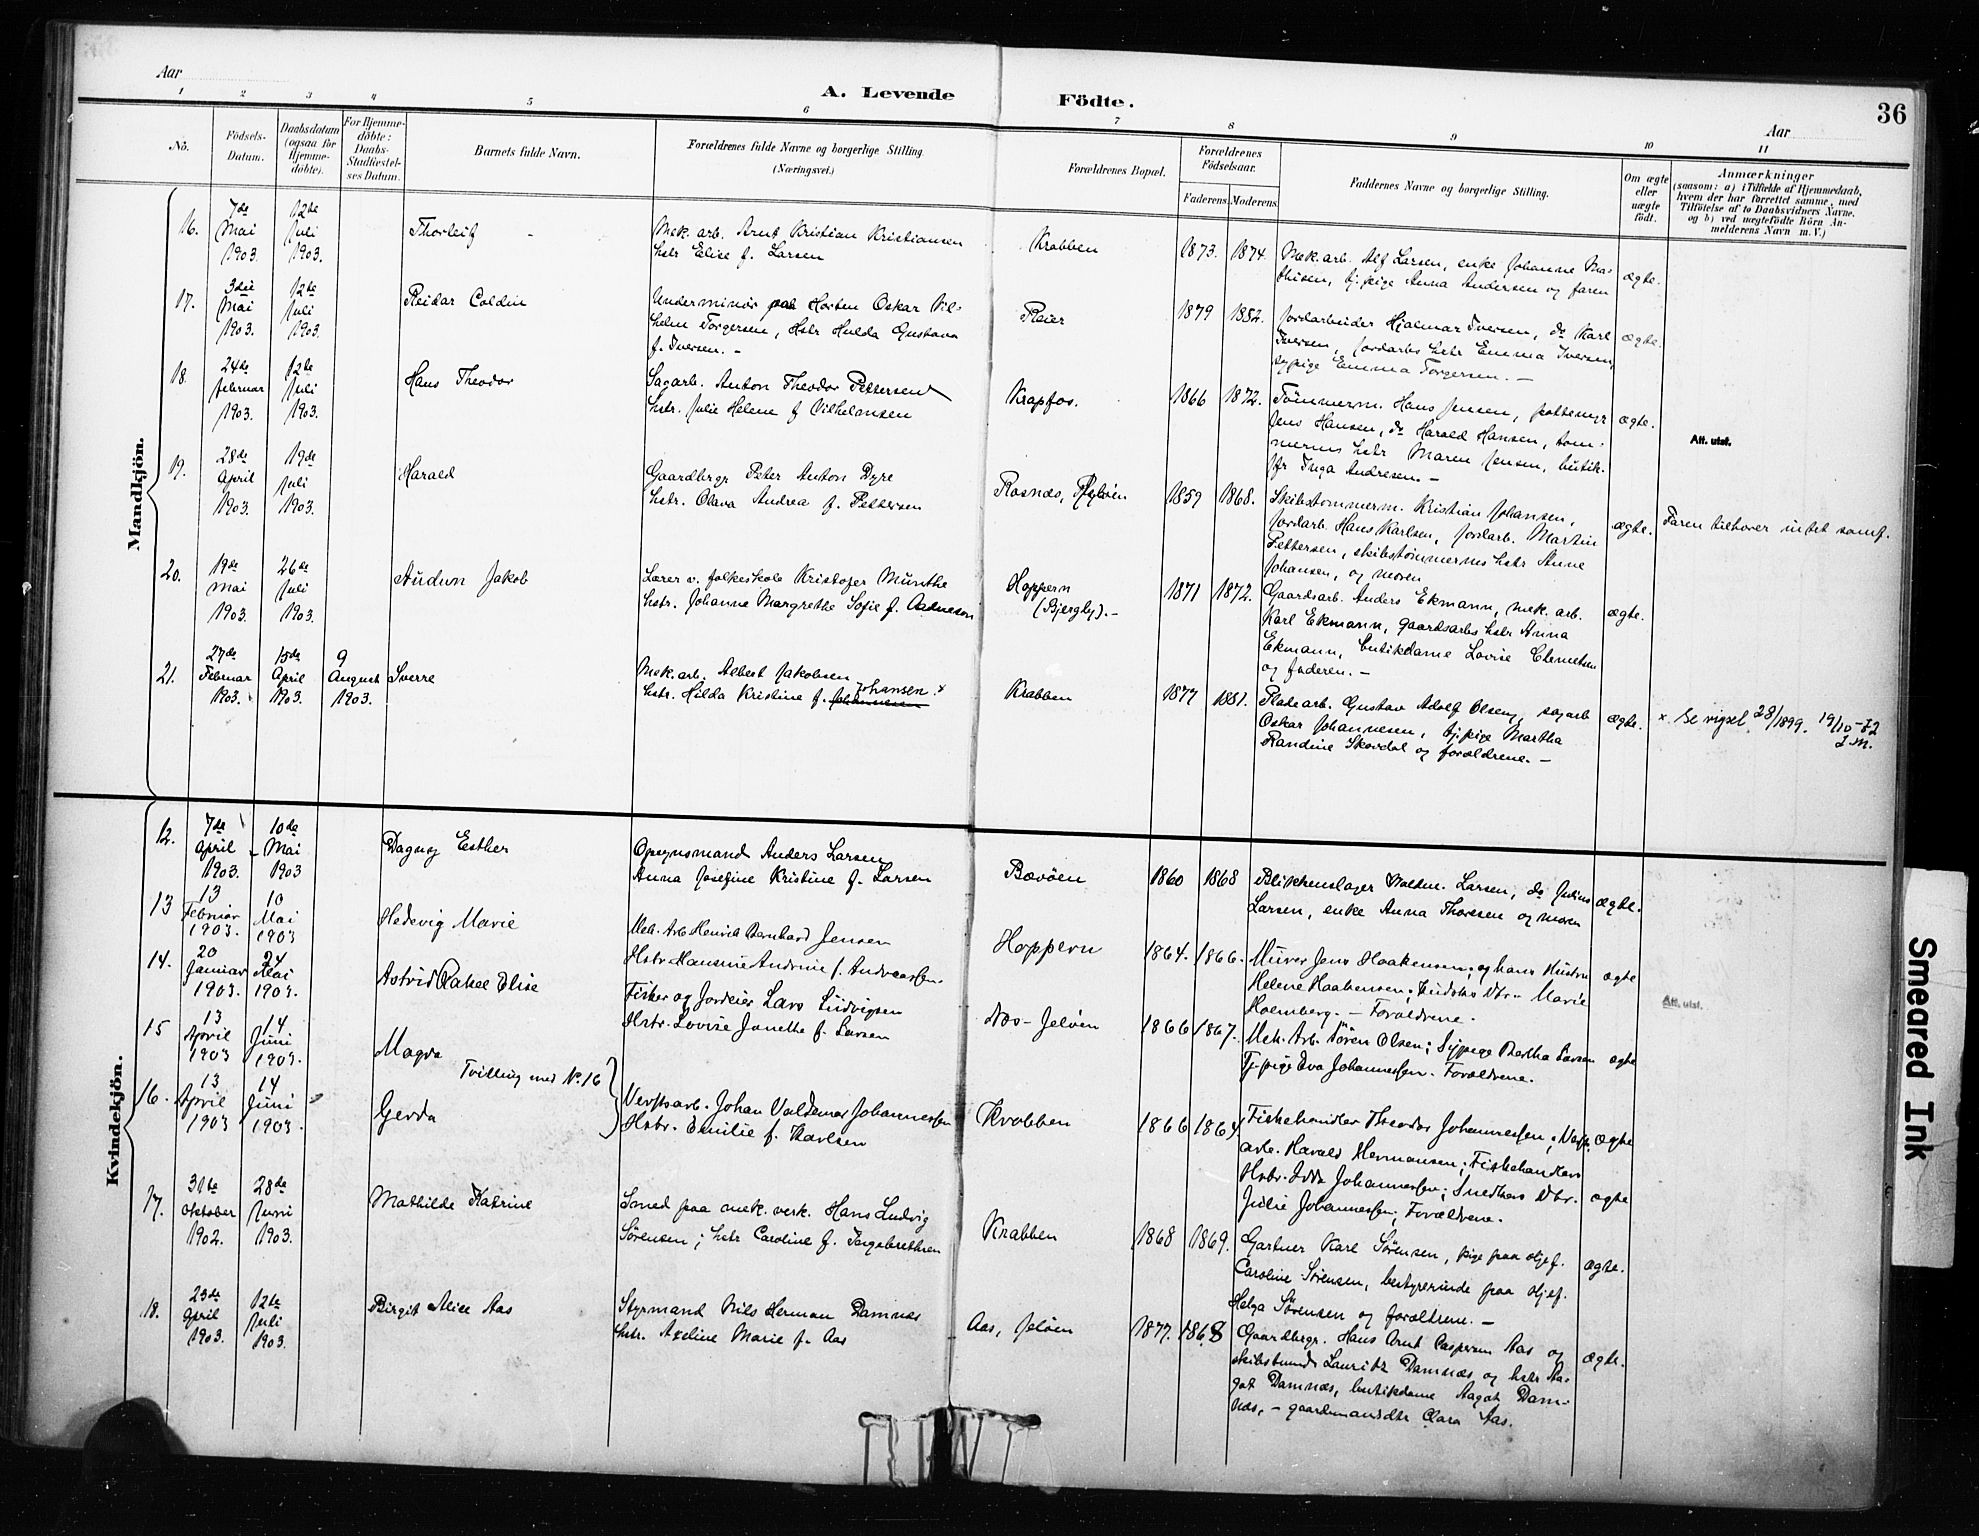 Aar
A. Levende Födte.
Aar
36
1 2 3 4 5 6 7 8 9 10 11
No.
Födsels-Datum.
Daabsdatum (ogsaa for Hjemme-döbte).
For Hjemme-döbte: Daabs-Stadfæstel-ses Datum.
Barnets fulde Navn.
Forældrenes fulde Navne og borgerlige Stilling (Næringsvei.)
Forældrenes Bopæl.
Forældrenes Födselsaar.
Faderens. Moderens.
Faddernes Navne og borgerlige Stilling.
Om ægte eller uægte födt.
Anmærkninger
(saasom: a) i Tilfælde af Hjemmedaab,
hvem der har forrettet samme, med
Tilföielse af to Daabsvidners Navne.
og b) ved uægtefödte Börn An-
melderens Navn m. V.)
Mandkjön.
16. 7de Mai 1903. 12te Juli 1903. Thorleif -
Mek. arb. Arnt Kristian Kristiansen
hstr Elise f. Larsen
Krabben 1873. 1874.
Mek. arb. Alf Larsen, enke Johanne Ma-
thisen, tj.pige Anna Andersen og faren
ægte.
17. 3die Mai 1903. 12te Juli 1903. Reidar Coldin
Underminör paa Horten Oskar Vil-
helm Torgersen, Hstr Hulda Gustava
f. Iversen. -
Reier 1879 1882.
Jordarbeider Hjalmar Iversen, do Karl
Iversen, jordarbs hstr Emma Iversen,
sypige Emma Torgersen. -
ægte.
18. 24de Februar 1903. 12te Juli 1903. Hans Theodor
Sagarb. Anton Theodor Pettersen
hstr. Julie Helene f Vilhelmsen
Krapfos. 1866 1872.
Tömmerm. Hans Jensen, pottemgr
Jens Hansen, do Harald Hansen, töm-
merms hstr Maren Jensen, butik-
jfr Inga Andresen. -
ægte.
Att. utst.
19. 28de April 1903. 19de Juli 1903. Harald
Gaardbrgr Peter Anton Dyre
hstr. Olava Andrea f. Pettersen
Rosnæs, Jelöen 1859 1868.
Skibstömmerm. Kristian Johansen,
Jordarb. Hans Karlsen, jordarb. Martin
Pettersen, skibstömmermes hstr Anne
Johansen, og moren
ægte.
Faren tilhører intet samf.
20. 19de Mai 1903. 26de Juli 1903. Audun Jakob
Lærer v. folkeskole Kristofer Munthe
hstr. Johanne Margrethe Sofie f. Aadneson
Hoppern
(Bjergby). - 1871 1872.
Gaardsarb. Anders Ekmann, mek. arb.
Karl Ekmann, gaardsarbs hstr Anna
Ekmann, butikdame Lovise Clemetsen
og faderen. -
ægte.
21. 27de Februar 1903. 15de April 1903. 9 August 1903. Sverre
Mek. arb. Albert Jakobsen
hstr. Hilda Kristine f. Johannesen Johansen. x
Krabben 1877 1881.
Pladearb. Gustav Adolf Olsen, sagarb
Oskar Johannesen, tj.pige Martha
Randine Skovdal og forældrene. -
ægte.
x. Se vigsel 28/1899. 19/10-72
I.M.
Kvindekjön.
12. 7de April 1903. 10de Mai 1903 Dagny Esther
Opsynsmand Anders Larsen
Anna Josefine Kristine f. Larsen
Bævöen 1860 1868
Blikkenslager Valdm. Larsen, do Julius
Larsen, enke Anna Thoresen og moren
ægte.
13 13 Februar 1903. 10 Mai 1903 Hedevig Marie
Mek. Arb Henrik Bernhard Jensen
Hstr Hansine Andrine f. Andreassen.
Hoppern 1864. 1866.
Murer Jens Haakensen, og hans Hustru
Helene Haakensen; Marie
Holmberg. - Forældrene.
ægte
14. 20 Januar 1903. 24 Mai 1903. Astrid Rakel Elise
Fisker og Jordeier Lars Ludvigsen
Hstr. Lovise Janette f. Larsen
Næs - Jelöen 1866 1867.
Mek. Arb. Sören Olsen; Sypige Bertha Larsen
Tj.pige Eva Johannessen. Forældrene.
ægte
Att. utst.
15 13 April 1903 14 Juni 1903. Magda
Tvilling med No. 16
16. 13 April 1903 14 Juni 1903. Gerda
Verftsarb. Johan Valdemar Johannessen
Hstr. Emilie f. Karlsen
Krabben 1866 1864
Fiskehandler Theodor Johannessen; Verfts-
arb. Harald Hermansen; Fiskehandlers
Hstr. Ida Johannessen; Snedkers Dtr.
Julie Johannessen; Forældrene.
ægte
ægte
17. 31te Oktober 1902. 28de Juni 1903. Mathilde Katrine
Smed paa mek. verk. Hans Ludvig
Sörensen; hstr Caroline f. Ingebrethsen
Krabben 1868 1869.
Gartner Karl Sörensen, pige paa oljef.
Caroline Sörensen, bestyrerinde paa oljef.
Helga Sörensen og forældrene. -
ægte.
18. 23de April 1903. 12te Juli 1903. Birgit Alice Aas
Styrmand Nils Herman Damnæs
hstr. Axeline Marie f. Aas
Aas, Jelöen 1877. 1868
Gaardbrgr. Hans Arnt Caspersen Aas og
skibstmds Lauritz Damnæs og hstr Aa-
got Damnæs, butikdame Aagot Dam-
næs, - gaardmandsdtr Clara Aas.
ægte.
Smeared Ink